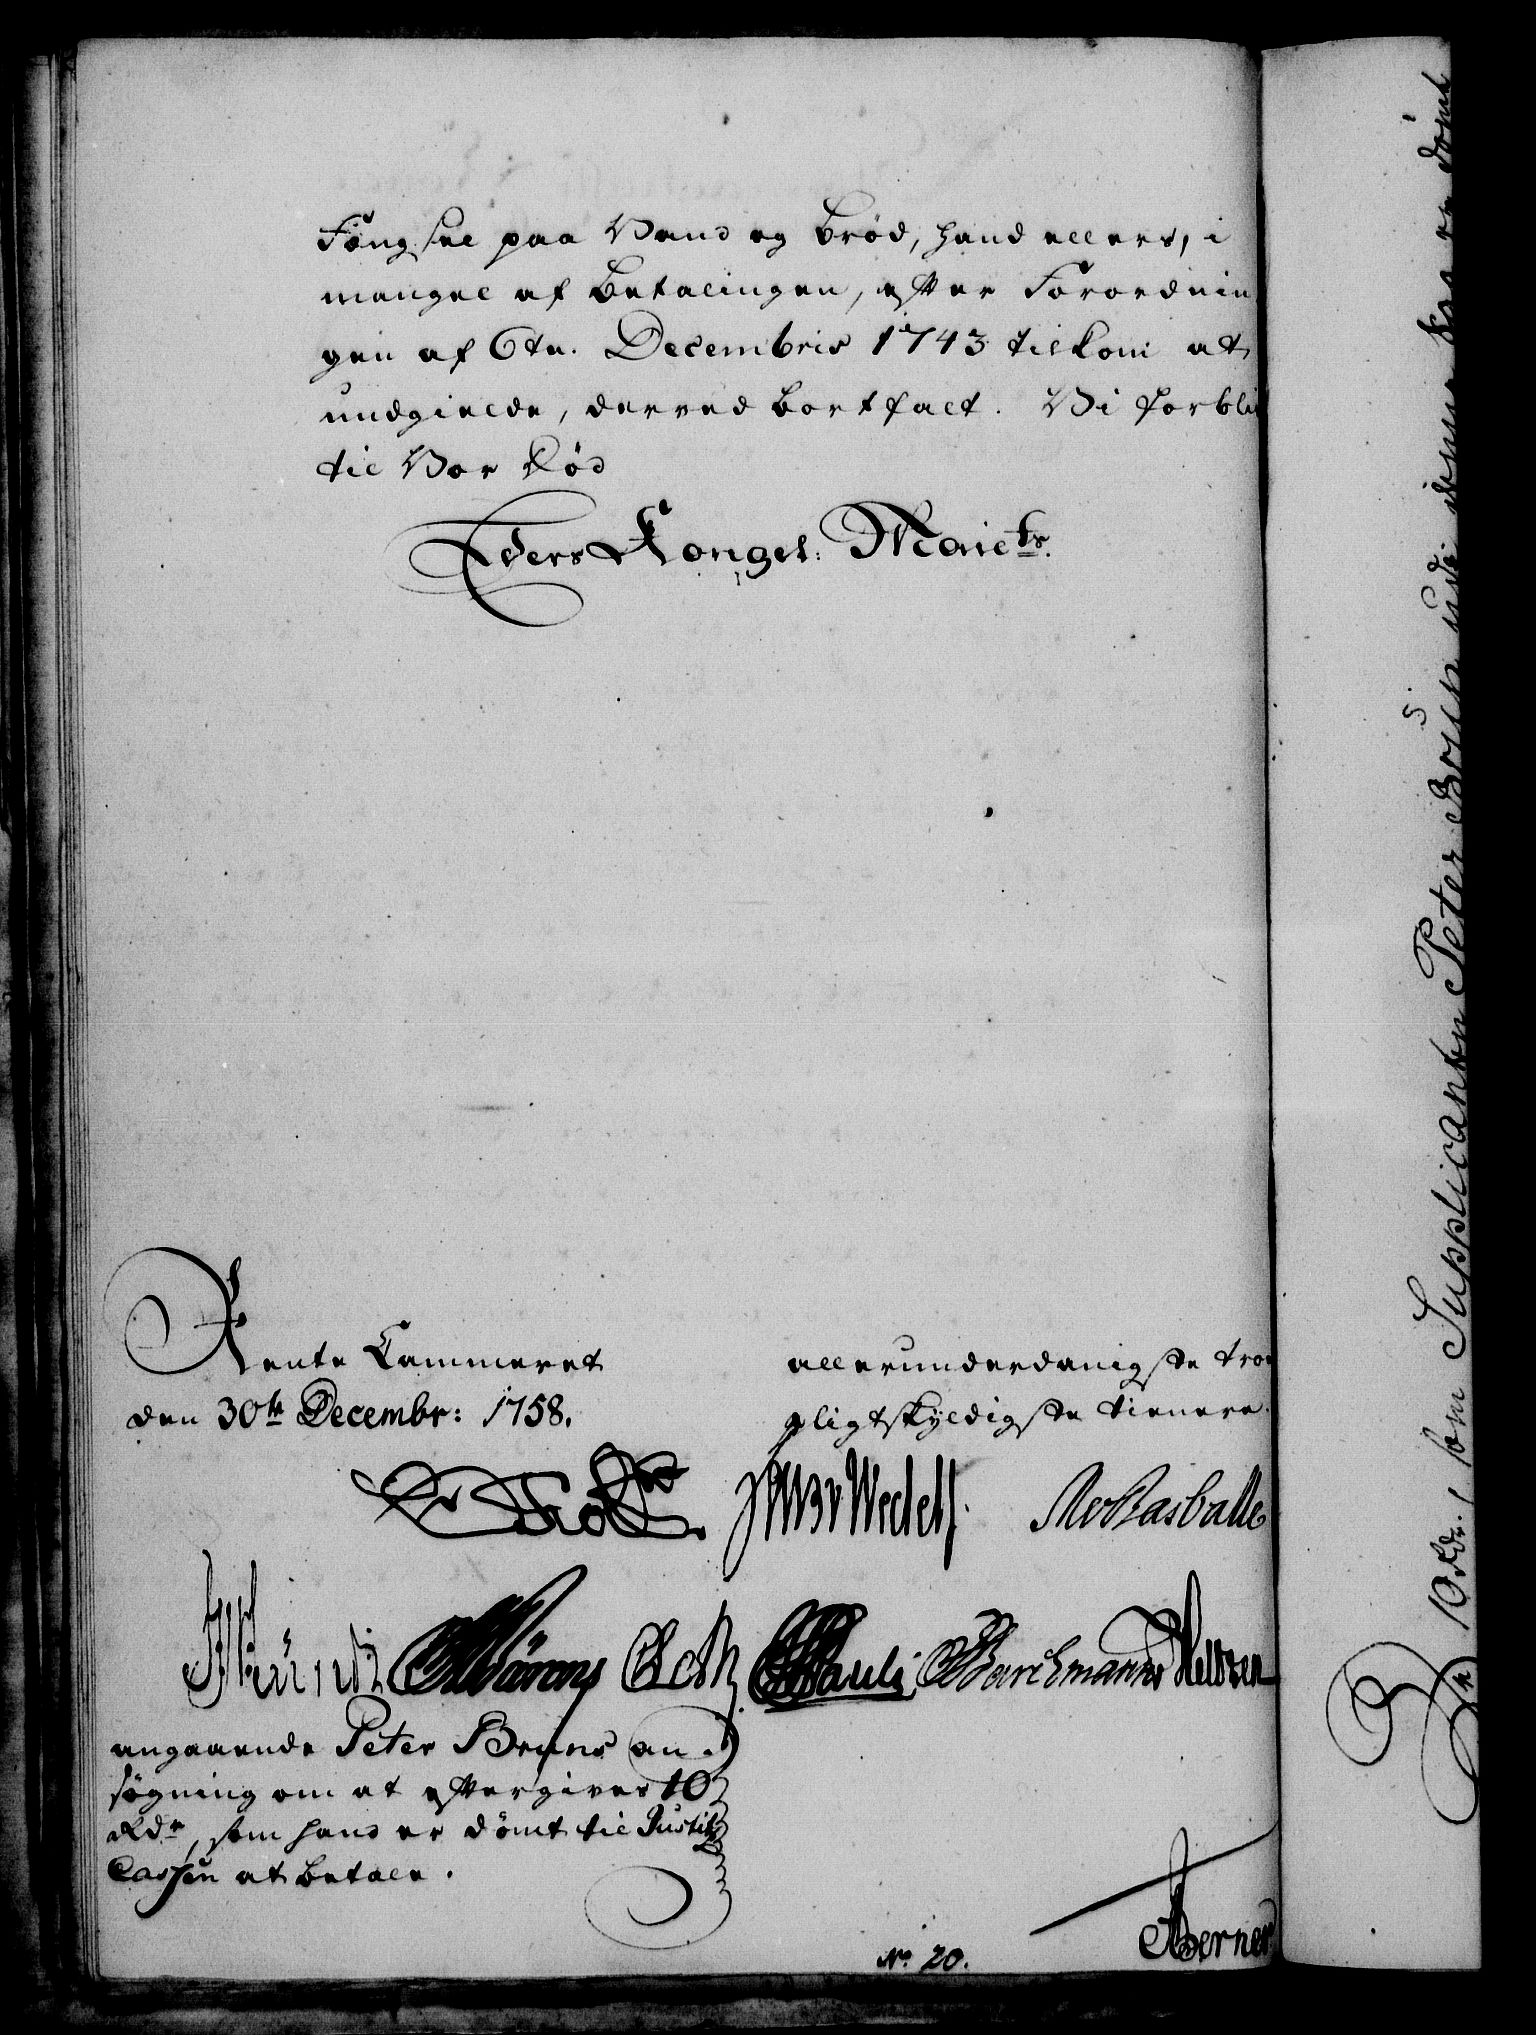 Fængsel paa Vand og Brød, hand ellers, i
mangel af Betalingen, efter Forordnin
gen af 6te. Decembris 1743 tilkom at
undgielde, derved bortfalt. Vi forbli
til Vor Død
Eders Kongel: Maiets.
Rente Cammeret
den 30te Decembr: 1758.
allerunderdanigste troe
pligtskyldigste tienere.
Wedell
angaaende Peter Bruns an-
søgning om at eftergives 10
Rdr, som hand er dømt til Justitz
Cassen at betale.
No. 20.
10 Rdr. som Supplicanten Peter Bruun udi denne Sag er dømt